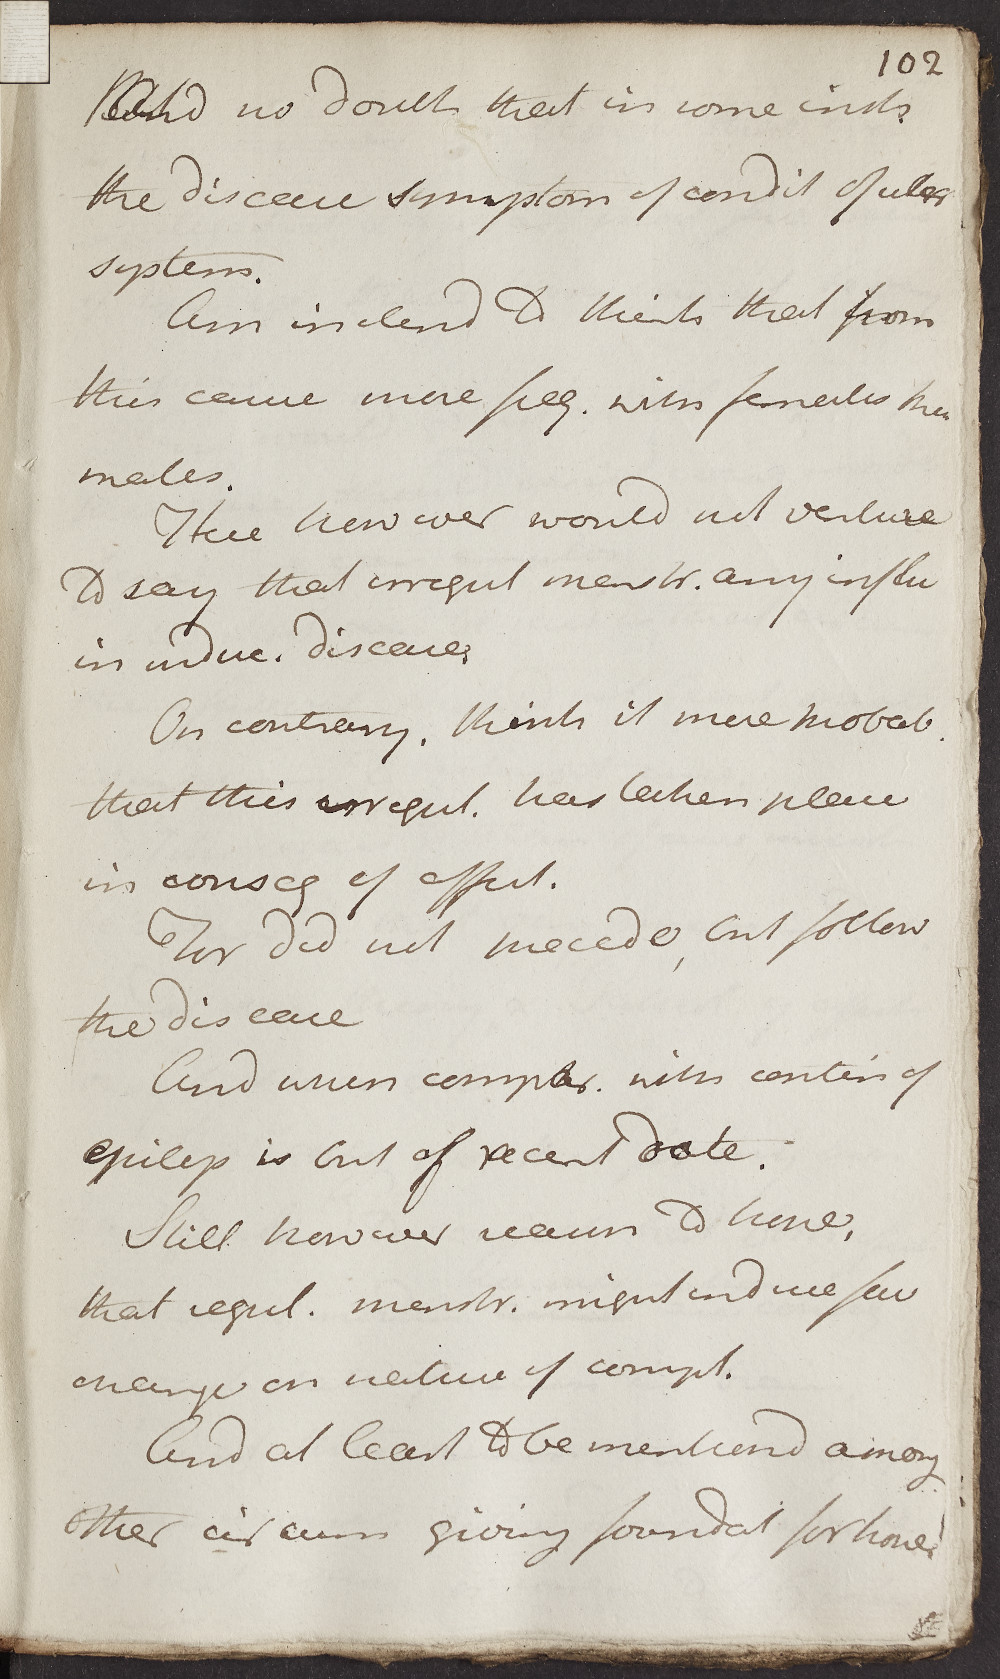 102
And no doubt that in some insts
the disease symptom of condit of uter
system.
Am inclend to think that from
this cause more freq. with females than
males.
Here however would not venture
to say that irregul menstr. any influ
in induc. disease.
On contrary, think it more probab.
that this irregul. has taken place
in conseq of affect.
For did not precede, but follow
the disease
And when compar. with contin of
epilep is but of recent date.
Still however reason to hope,
that regul. menstr. might induce fav
change on nature of compl.
And at least to be mentiond among
other circum giving foundat for hope.